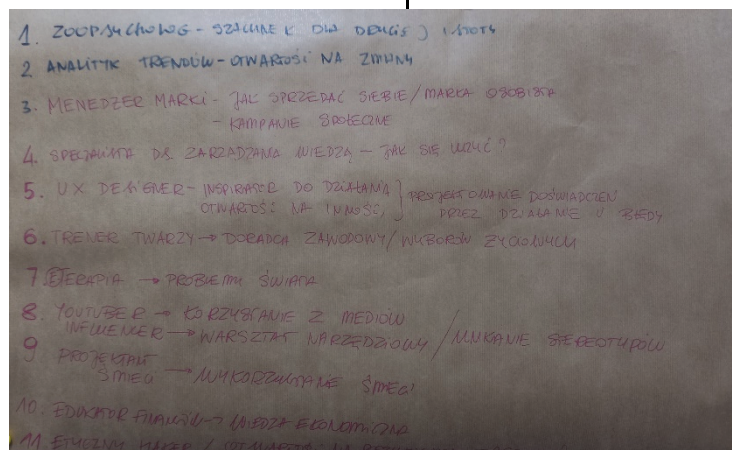 1. ZOOPSYCHOLOG - SZACUNEK DLA DRUGIEJ ISTOTY
2 ANALITYK TRENDÓW - OTWARTOŚĆ NA ZMIANY
3. MENEDŻER MARKI - JAK SPRZEDAĆ SIEBIE / MARKA OSOBISTA
- KAMPANIE SPOŁECZNE
4. SPECJALISTA DS. ZARZĄDZANIA WIEDZĄ - JAK SIĘ UCZYĆ?
5. UX DESIGNER - INSPIRATOR DO DZIAŁANIA } PROJEKTOWANIE DOŚWIADCZEŃ
OTWARTOŚĆ NA INNOŚĆ PRZEZ DZIAŁANIE I BŁĘDY
6. TRENER TWARZY → DORADCA ZAWODOWY / WYBORÓW ŻYCIOWYCH
7 TERAPIA → PROBLEMY ŚWIATA
8. YOUTUBER → KORZYSTANIE Z MEDIÓW
INFLUENCER → WARSZTAT NARZĘDZIOWY / UNIKANIE STEREOTYPÓW
9 PROJEKTANT
ŚMIECI → WYKORZYSTANIE ŚMIECI
10. EDUKATOR FINANSÓW → WIEDZA EKONOMICZNA
11 ETYCZNY HAKER /